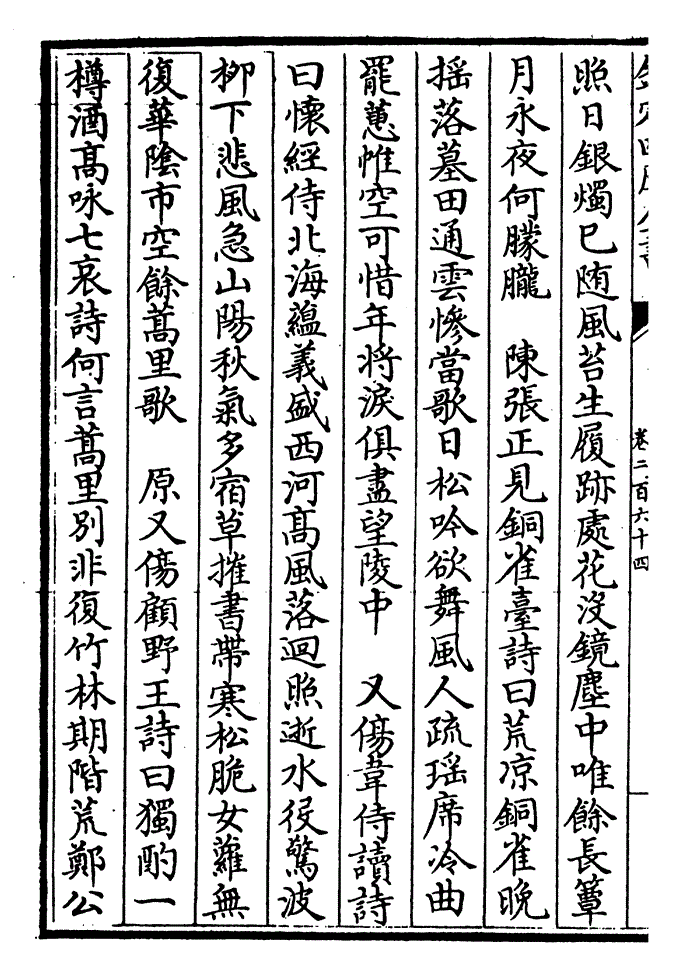 卷二百六十四
照日銀燭已随風苔生履跡處花没鏡塵中唯餘長簟
月永夜何朦朧　陳張正見銅雀臺詩曰荒凉銅雀晚
摇落墓田通雲慘當歌日松吟欲舞風人疏瑶席冷曲
罷蕙帷空可惜年將淚俱盡望陵中　又傷韋侍讀詩
曰懷經侍北海藴義盛西河髙風落迥照逝水役驚波
柳下悲風急山陽秋氣多宿草摧書帶寒松脆女蘿無
復華隂市空餘蒿里歌　原又傷顧野王詩曰獨酌一
樽酒髙咏七哀詩何言蒿里别非復竹林期階荒鄭公